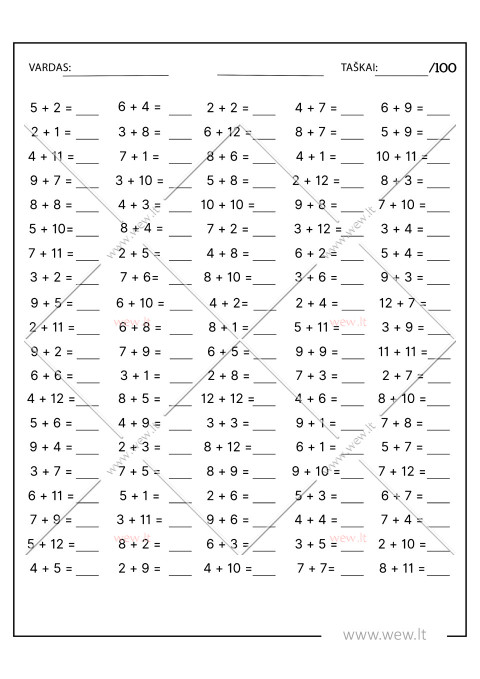 VARDAS:____________ ____________ TAŠKAI:________/100
5 + 2 = ___ 6 + 4 = ___ 2 + 2 = ___ 4 + 7 = ___ 6 + 9 = ___
2 + 1 = ___ 3 + 8 = ___ 6 + 12 = ___ 8 + 7 = ___ 5 + 9 = ___
4 + 11 = ___ 7 + 1 = ___ 8 + 6 = ___ 4 + 1 = ___ 10 + 11 = ___
9 + 7 = ___ 3 + 10 = ___ 5 + 8 = ___ 2 + 12 = ___ 8 + 3 = ___
8 + 8 = ___ 4 + 3 = ___ 10 + 10 = ___ 9 + 8 = ___ 7 + 10 = ___
5 + 10= ___ 8 + 4 = ___ 7 + 2 = ___ 3 + 12 = ___ 3 + 4 = ___
7 + 11 = ___ 2 + 5 = ___ 4 + 8 = ___ 6 + 2 = ___ 5 + 4 = ___
3 + 2 = ___ 7 + 6= ___ 8 + 10 = ___ 3 + 6 = ___ 9 + 3 = ___
9 + 5 = ___ 6 + 10 = ___ 4 + 2= ___ 2 + 4 = ___ 12 + 7 = ___
2 + 11 = ___ 6 + 8 = ___ 8 + 1 = ___ 5 + 11 = ___ 3 + 9 = ___
9 + 2 = ___ 7 + 9 = ___ 6 + 5 = ___ 9 + 9 = ___ 11 + 11 = ___
6 + 6 = ___ 3 + 1 = ___ 2 + 8 = ___ 7 + 3 = ___ 2 + 7 = ___
4 + 12 = ___ 8 + 5 = ___ 12 + 12 = ___ 4 + 6 = ___ 8 + 10 = ___
5 + 6 = ___ 4 + 9 = ___ 3 + 3 = ___ 9 + 1 = ___ 7 + 8 = ___
9 + 4 = ___ 2 + 3 = ___ 8 + 12 = ___ 6 + 1 = ___ 5 + 7 = ___
3 + 7 = ___ 7 + 5 = ___ 8 + 9 = ___ 9 + 10 = ___ 7 + 12 = ___
6 + 11 = ___ 5 + 1 = ___ 2 + 6 = ___ 5 + 3 = ___ 6 + 7 = ___
7 + 9 = ___ 3 + 11 = ___ 9 + 6 = ___ 4 + 4 = ___ 7 + 4 = ___
5 + 12 = ___ 8 + 2 = ___ 6 + 3 = ___ 3 + 5 = ___ 2 + 10 = ___
4 + 5 = ___ 2 + 9 = ___ 4 + 10 = ___ 7 + 7= ___ 8 + 11 = ___
www.wew.lt
www.wew.lt
wew.lt
wew.lt
www.wew.lt
www.wew.lt
wew.lt
wew.lt
www.wew.lt